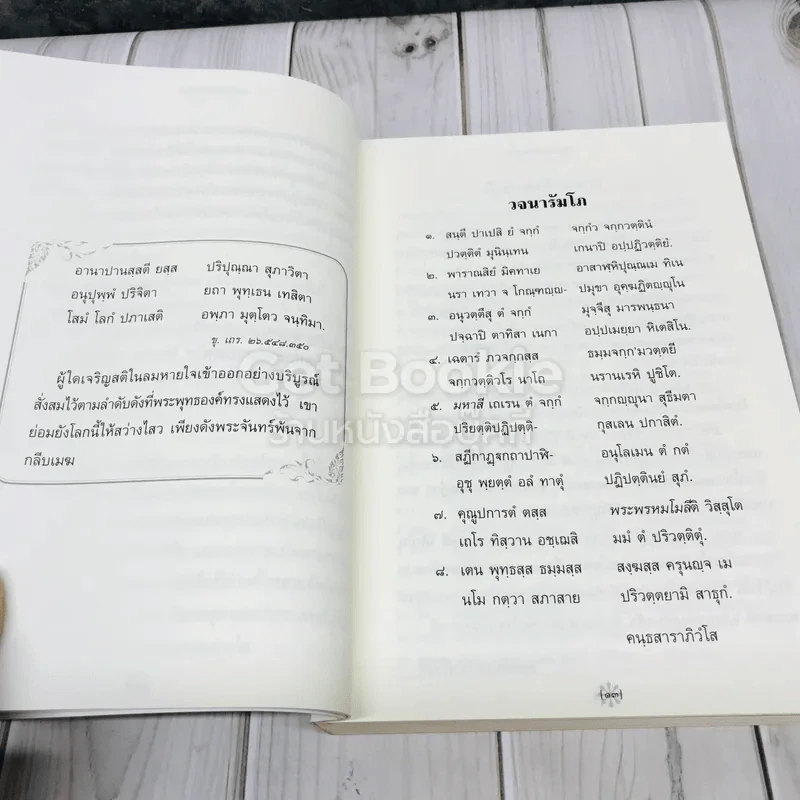 อานาปานสฺสตี ยสฺส ปริปุณฺณา สุภาวิตา
อนุปุพฺพํ ปริจิตา ยถา พุทฺเธน เทสิตา
โสมํ โลกํ ปภาเสติ อพฺภา มุตฺโตว จนฺทิมา.
ขุ. เถร. ๒๖.๕๔๘.๓๕๐
ผู้ใดเจริญสติในลมหายใจเข้าออกอย่างบริบูรณ์
สั่งสมไว้ตามลำดับดังที่พระพุทธองค์ทรงแสดงไว้ เขา
ย่อมยังโลกนี้ให้สว่างไสว เพียงดังพระจันทร์พ้นจาก
กลีบเมฆ
วจนารัมโภ
๑. สนฺตึ ปาเปสิ ยํ จกฺกํ จกฺกํว จกฺกวตฺตินํ
ปวตฺติตํ มุนินฺเทน เกนาปิ อปฺปฏิวตฺติยํ.
๒. พาราณสิยํ มิคทาเย อาสาฬฺหิปุณฺณเม ทิเน
นรา เทวา จ โกณฺฑญฺญ- ปมุขา อุคฺฆฏิตญฺญุโน
๓. อนุวตฺตึสุ ตํ จกฺกํ มุจฺจึสุ มารพนฺธนา
ปจฺฉาปิ ตาทิสา เนกา อปฺปเมยฺยา หิเตสิโน.
๔. เฉตารํ ภวจกฺกสฺส ธมฺมจกฺก'มวตฺตยี
จกฺกวตฺติวโร นาโถ นรานเรหิ ปูชิโต.
๕. มหาสี เถเรน ตํ จกฺกํ จกฺกญฺญุนา สุธีมตา
ปริยตฺติปฏิปตฺติ- กุสเลน ปกาสิตํ.
๖. สฏีกาฏฺฐกถาปาฬิ- อนุโลเมน ตํ กตํ
อุชุ พฺยตฺตํ อลํ ทาตุํ ปฏิปตฺตินยํ สุภํ.
๗. คุณูปการตํ ตสฺส พระพรหมโมลีติ วิสฺสุโต
เถโร ทิสฺวาน อชฺเฌสิ มมํ ตํ ปริวตฺติตุํ.
๘. เตน พุทฺธสฺส ธมฺมสฺส สงฺฆสฺส ครุนญฺจ เม
นโม กตฺวา สภาสาย ปริวตฺตยามิ สาธุกํ.
คนฺธสาราภิวํโส
[๑๓]
Get Bookie
ร้านหนังสือกู๊ดดี้